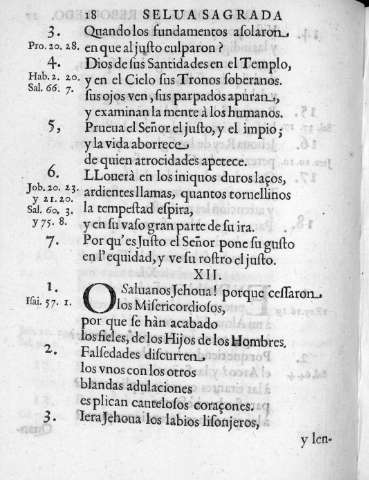 18 SELUA SAGRADA
3. Quando los fundamentos asolaron
Pro. 20. 28. en que al justo culparon ?
4. Dios de sus Santidades en el Templo,
Hab. 2. 20. y en el Cielo sus Tronos soberanos.
Sal. 66. 7. sus ojos ven, sus parpados apuran,
y examinan la mente à los humanos.
5, Prueua el Señor el justo, y el impio;
y la vida aborrece
de quien atrocidades apetece.
6. LLouerà en los iniquos duros laços,
Job. 20. 23. ardientes llamas, quantos tornellinos
y 21. 20. la tempestad espira,
Sal. 60. 3.
y 75. 8. y en su vaso gran parte de su ira.
7. Por qu'es Justo el Señor pone su gusto
en l'equidad, y ve su rostro el justo.
XII.
1. O Saluanos Jehona! porque cessaron
Isai. 57. 1. los Misericordiosos,
por que se hàn acabado
los fieles, de los Hijos de los Hombres.
2. Falsedades discurren
los vnos con los otros
blandas adulaciones
esplican cantelosos coraçones.
3. Iera Jehona los labios lisonjeros,
y len-